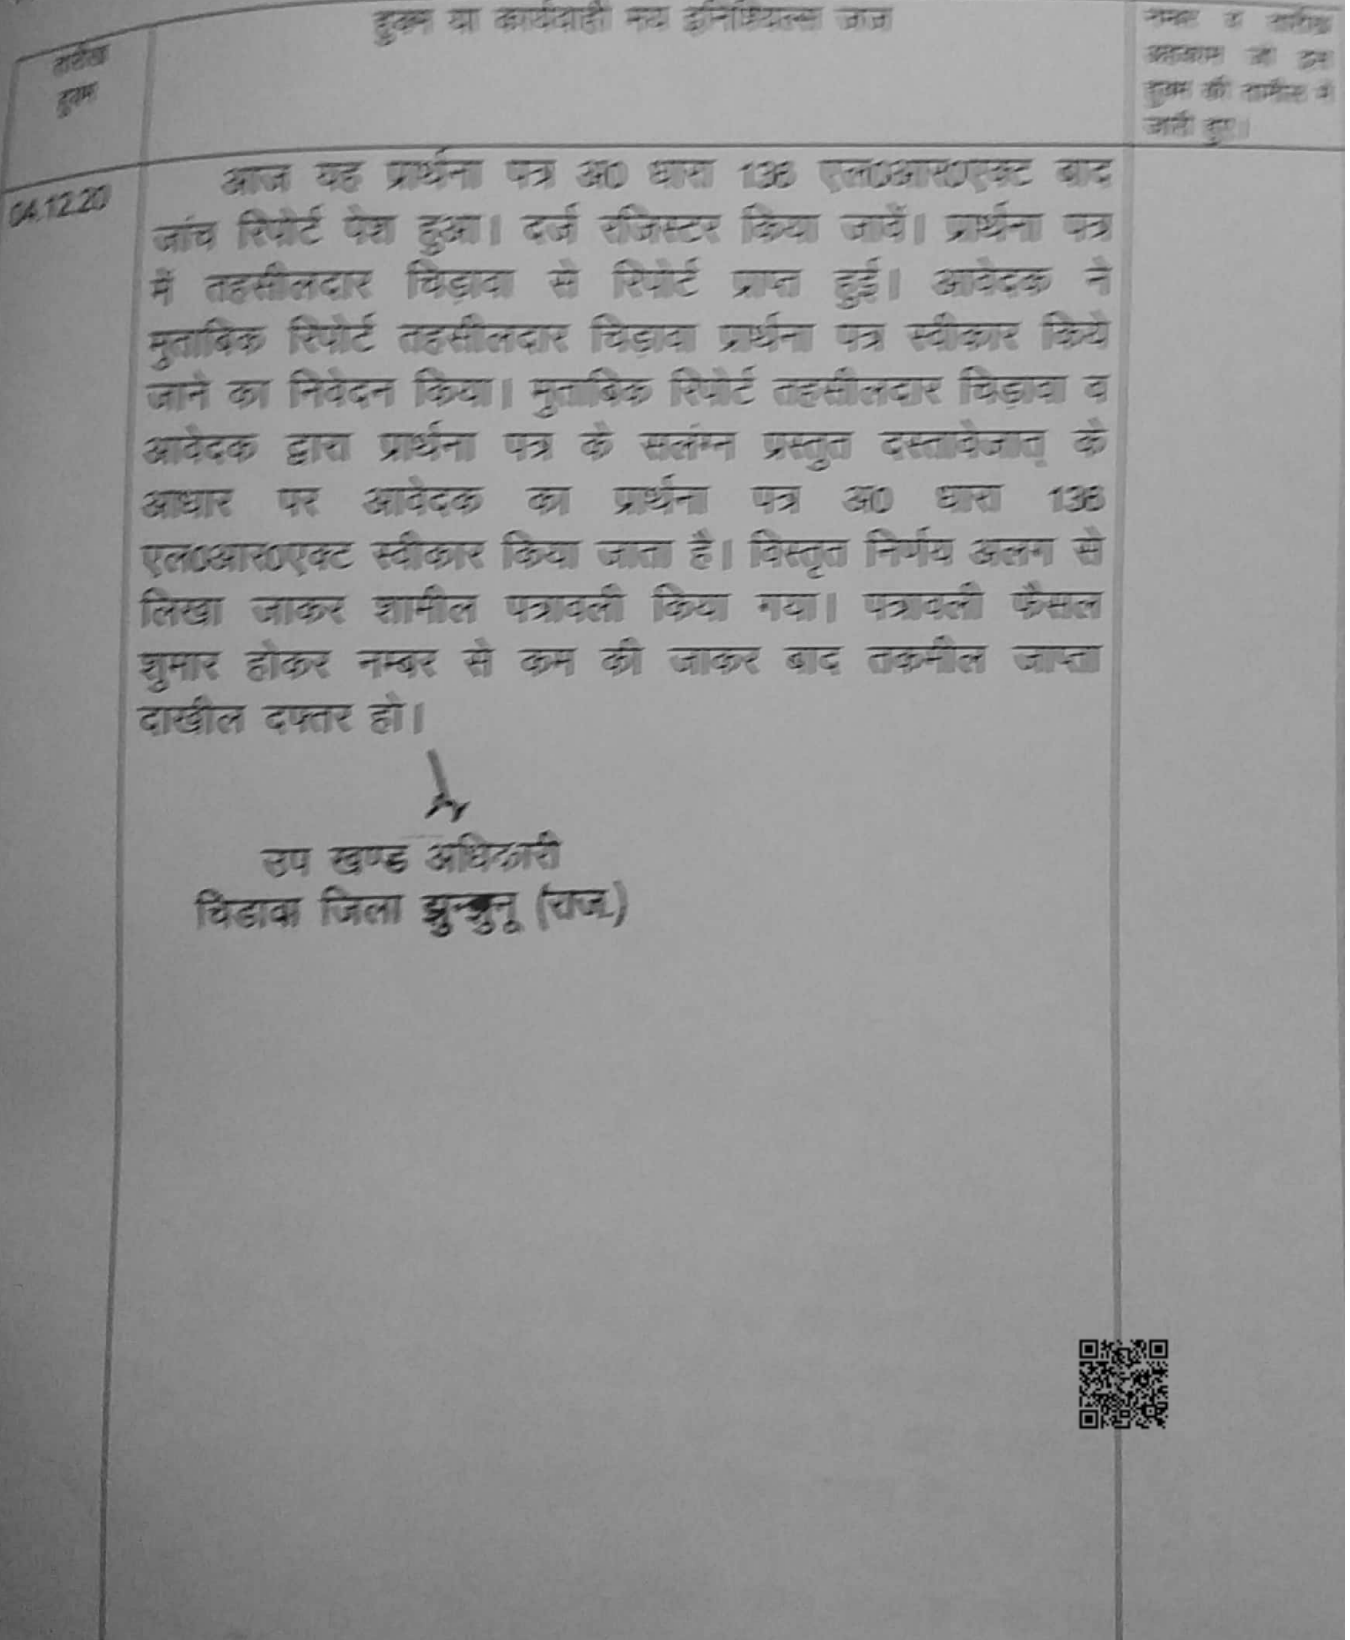 हुक्म या कार्यवाही मय इनिशियल्स जज
तारीख
हुक्म
नम्बर व तारीख
अहकाम जो इस
हुक्म की तामील में
जारी हुए।
04.12.20
आज यह प्रार्थना पत्र अ0 धारा 136 एल0आर0एक्ट बाद
जांच रिपोर्ट पेश हुआ। दर्ज रजिस्टर किया जावें। प्रार्थना पत्र
में तहसीलदार चिड़ावा से रिपोर्ट प्राप्त हुई। आवेदक ने
मुताबिक रिपोर्ट तहसीलदार चिड़ावा प्रार्थना पत्र स्वीकार किये
जाने का निवेदन किया। मुताबिक रिपोर्ट तहसीलदार चिड़ावा व
आवेदक द्वारा प्रार्थना पत्र के सलंग्न प्रस्तुत दस्तावेजात् के
आधार पर आवेदक का प्रार्थना पत्र अ0 धारा 136
एल0आर0एक्ट स्वीकार किया जाता है। विस्तृत निर्णय अलग से
लिखा जाकर शामील पत्रावली किया गया। पत्रावली फैसल
शुमार होकर नम्बर से कम की जाकर बाद तकमील जाप्ता
दाखील दफ्तर हो।
उप खण्ड अधिकारी
चिडावा जिला झुन्झुनू (राज.)